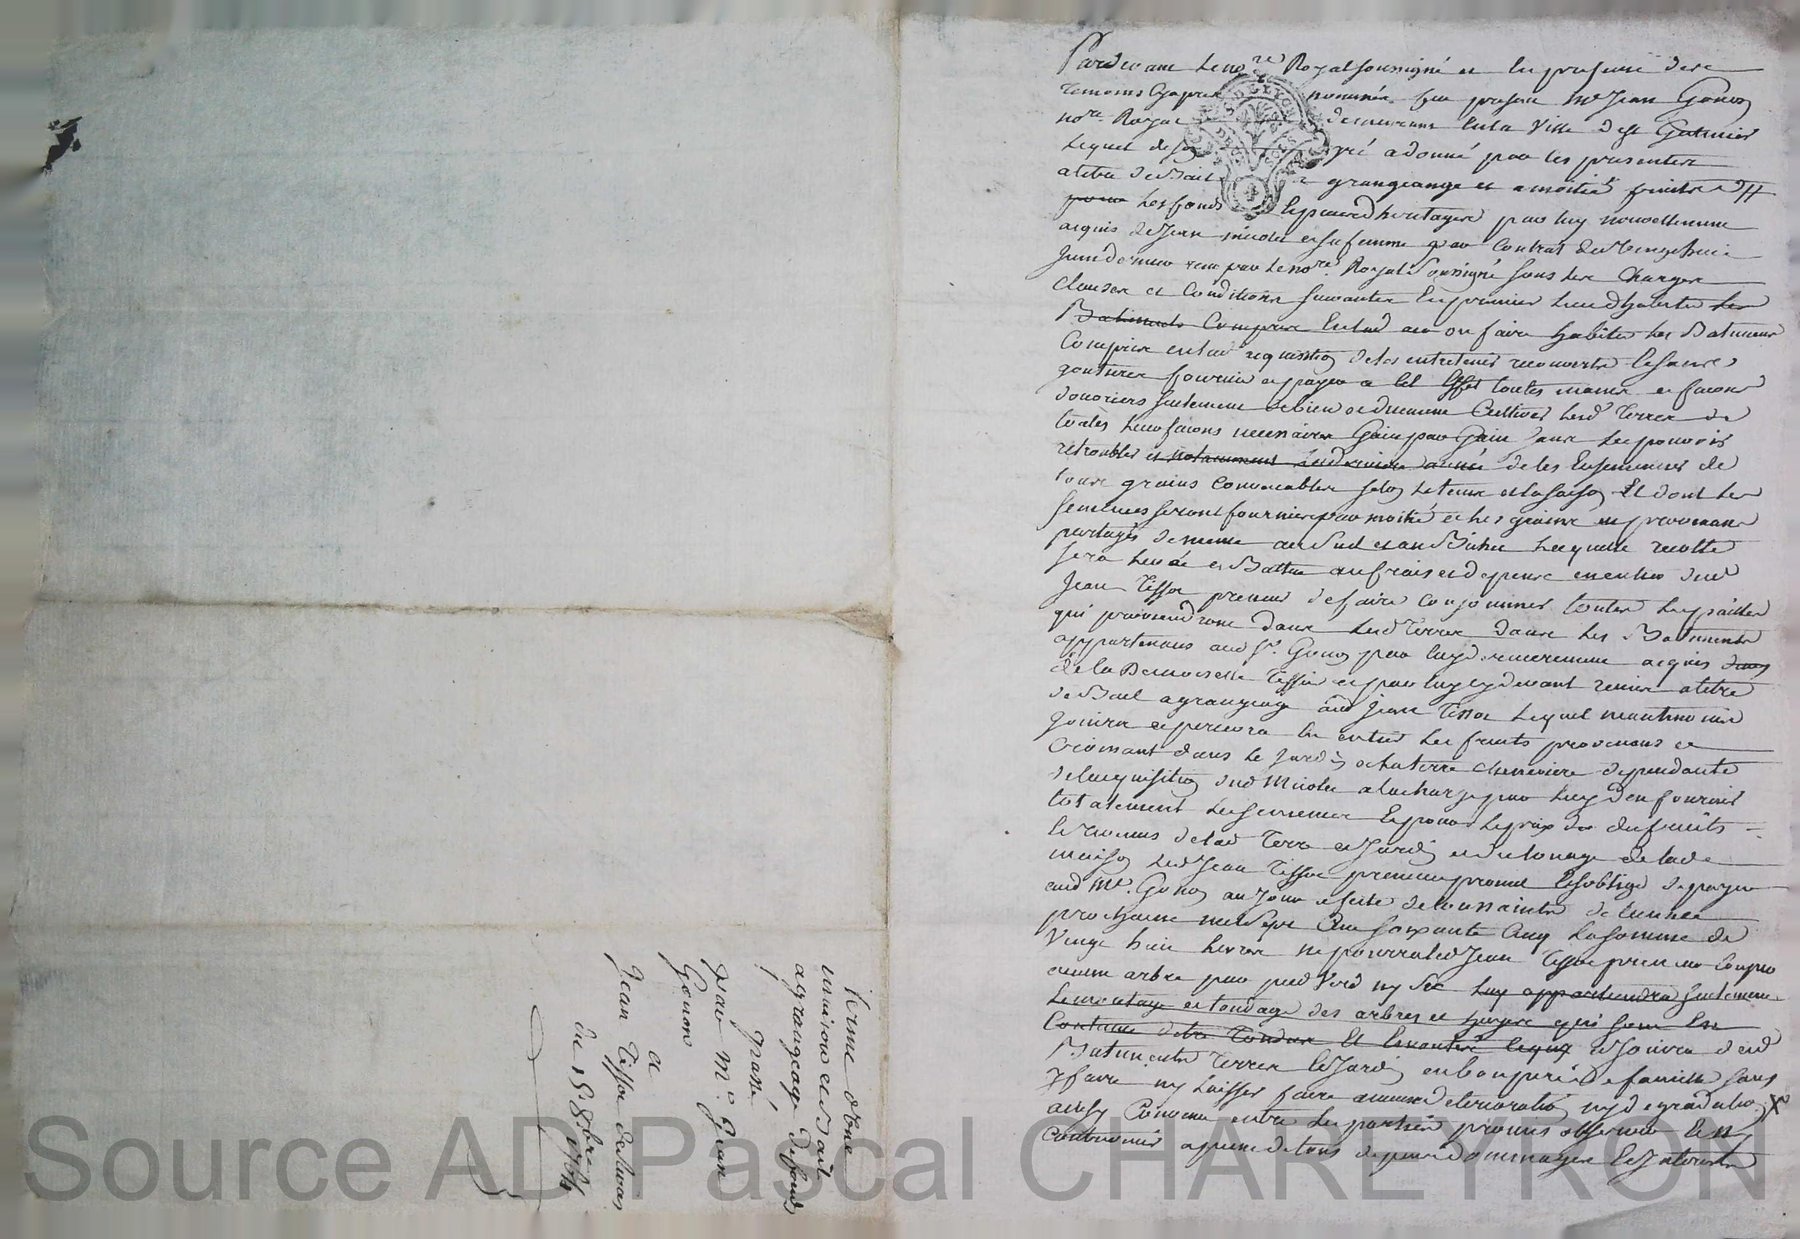 Pardevant le no.re Royal soussigné et en presence des
temoins cy apres nommés fut present Me Jean Gonon
no.re Royal demeurant en la Ville de St Galmier
Lequel de gré a donné par les presentes
a titre de Bail a grangeage et a moitié fruits
pour les fonds heritages par luy nouvellement
acquis de Jean et sa femme par contrat du vingt huit
Juin dernier receu par le no.re Royal soussigné sous les charges
clauses et Conditions suivantes En premier lieu d'habiter les
Batiments Compris ou faire habiter les Batiments
Compris de les entretenir recouverts
goutieres fournir et payer a cet effet toutes et façons
douvriers seulement de bien et duement Cultiver lesd Terres de
toutes leurs façons necessaires sans les pouvoir
retroubler et notamment la derniere année de les Ensemencer de
tous grains convenables selon le tems et la saison Et dont les
semences seront fournies par moitié et les grains en provenant
partagés de meme au et au Bichet Laquelle recolte
sera levée et Battue aux frais et depens en entier dud
Jean Tissot preneur de faire consommer toutes les pailles
qui proviendront dans lesd Terres dans les Batiments
appartenans aud Sr. Gonon par luy dernierement acquis
de la Demoiselle Tissier et par luy cy devant remis a titre
de Bail a grangeage aud Jean Tissot Lequel neantmoins
Jouira et percevra en entier les fruits provenans et
croissant dans le Jardin et la terre cheneviere dependante
de lacquisition dud a la charge par luy d'en fournir
totalement les semences Et pour le prix des fruits
et revenus de lad Terre et Jardin et du louage de lade
maison led Jean Tissot preneur promet et soblige de payer
aud Me. Gonon au Jour et feste de toussaints de lannée
prochaine mil sept Cent soixante Cinq La somme de
Vingt huit livres ne pourra led Jean Tissot preneur couper
aucun arbre par pied Verd ny sec luy appartiendra seulement
Lemontage et tondage des arbres et hayes qui sont En
Coutume detre Tondus Et Jouira desd
Batiments Terres et Jardin en bon pere de famille sans
y faire ny laisser faire aucune deterioration ny degradation X
ainsy Convenu entre les parties promis observer et n
contrevenir a peine de tous depens dommages et Interets
ferme d'une
maison et Bail
a grangeage de fonds
passé
par Me. Jean
Gonon
a
Jean Tissot
du 15 8bre
1764
Source AD Pascal CHAREYRON